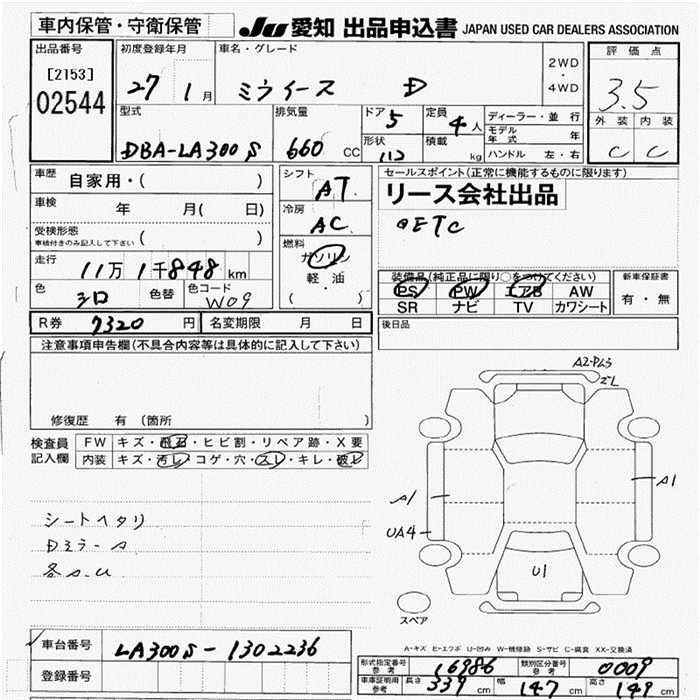 車内保管・守衛保管
JU 愛知 出品申込書 JAPAN USED CAR DEALERS ASSOCIATION
出品番号
[2153]
02544
初度登録年月
27 1月
車名・グレード
ミライース D
2WD
・
4WD
評価点
3.5
外装 内装
C C
型式
DBA-LA300S
排気量
660 CC
ドア 5
形状
定員 4人
積載 kg
ディーラー・並行
モデル年式 年
ハンドル 左・右
車歴 自家用・( )
車検 年 月( 日)
受検形態
車検付きのみ記入して下さい ( )
走行 11万1千848km
色 シロ
色替
色コード W09
シフト AT
冷房 AC
燃料
ガソリン
軽・油
( )
セールスポイント(正常に機能するものに限ります)
リース会社出品
ETC
装備品(純正品に限り○をつけてください)
PS PW エアB AW
SR ナビ TV カワシート
新車保証書
有・無
後日品
R券 7320 円 名変期限 月 日
注意事項申告欄(不具合内容等は具体的に記入して下さい)
修復歴 有 (箇所 )
検査員記入欄
FW キズ・飛石・ヒビ割・リペア跡・X要
内装 キズ・汚レ・コゲ・穴・スレ・キレ・破レ
シートヘタリ
DミラーA
各A.U
A1
UA4
A1
U1
スペア
A-キズ E-エクボ U-凹み W-補修跡 S-サビ C-腐食 XX-交換済
車台番号 LA300S-1302236
登録番号
形式指定番号 参考 16986 類別区分番号 参考 0009
車庫証明用 参考 長さ 339cm 幅 147cm 高さ 149cm